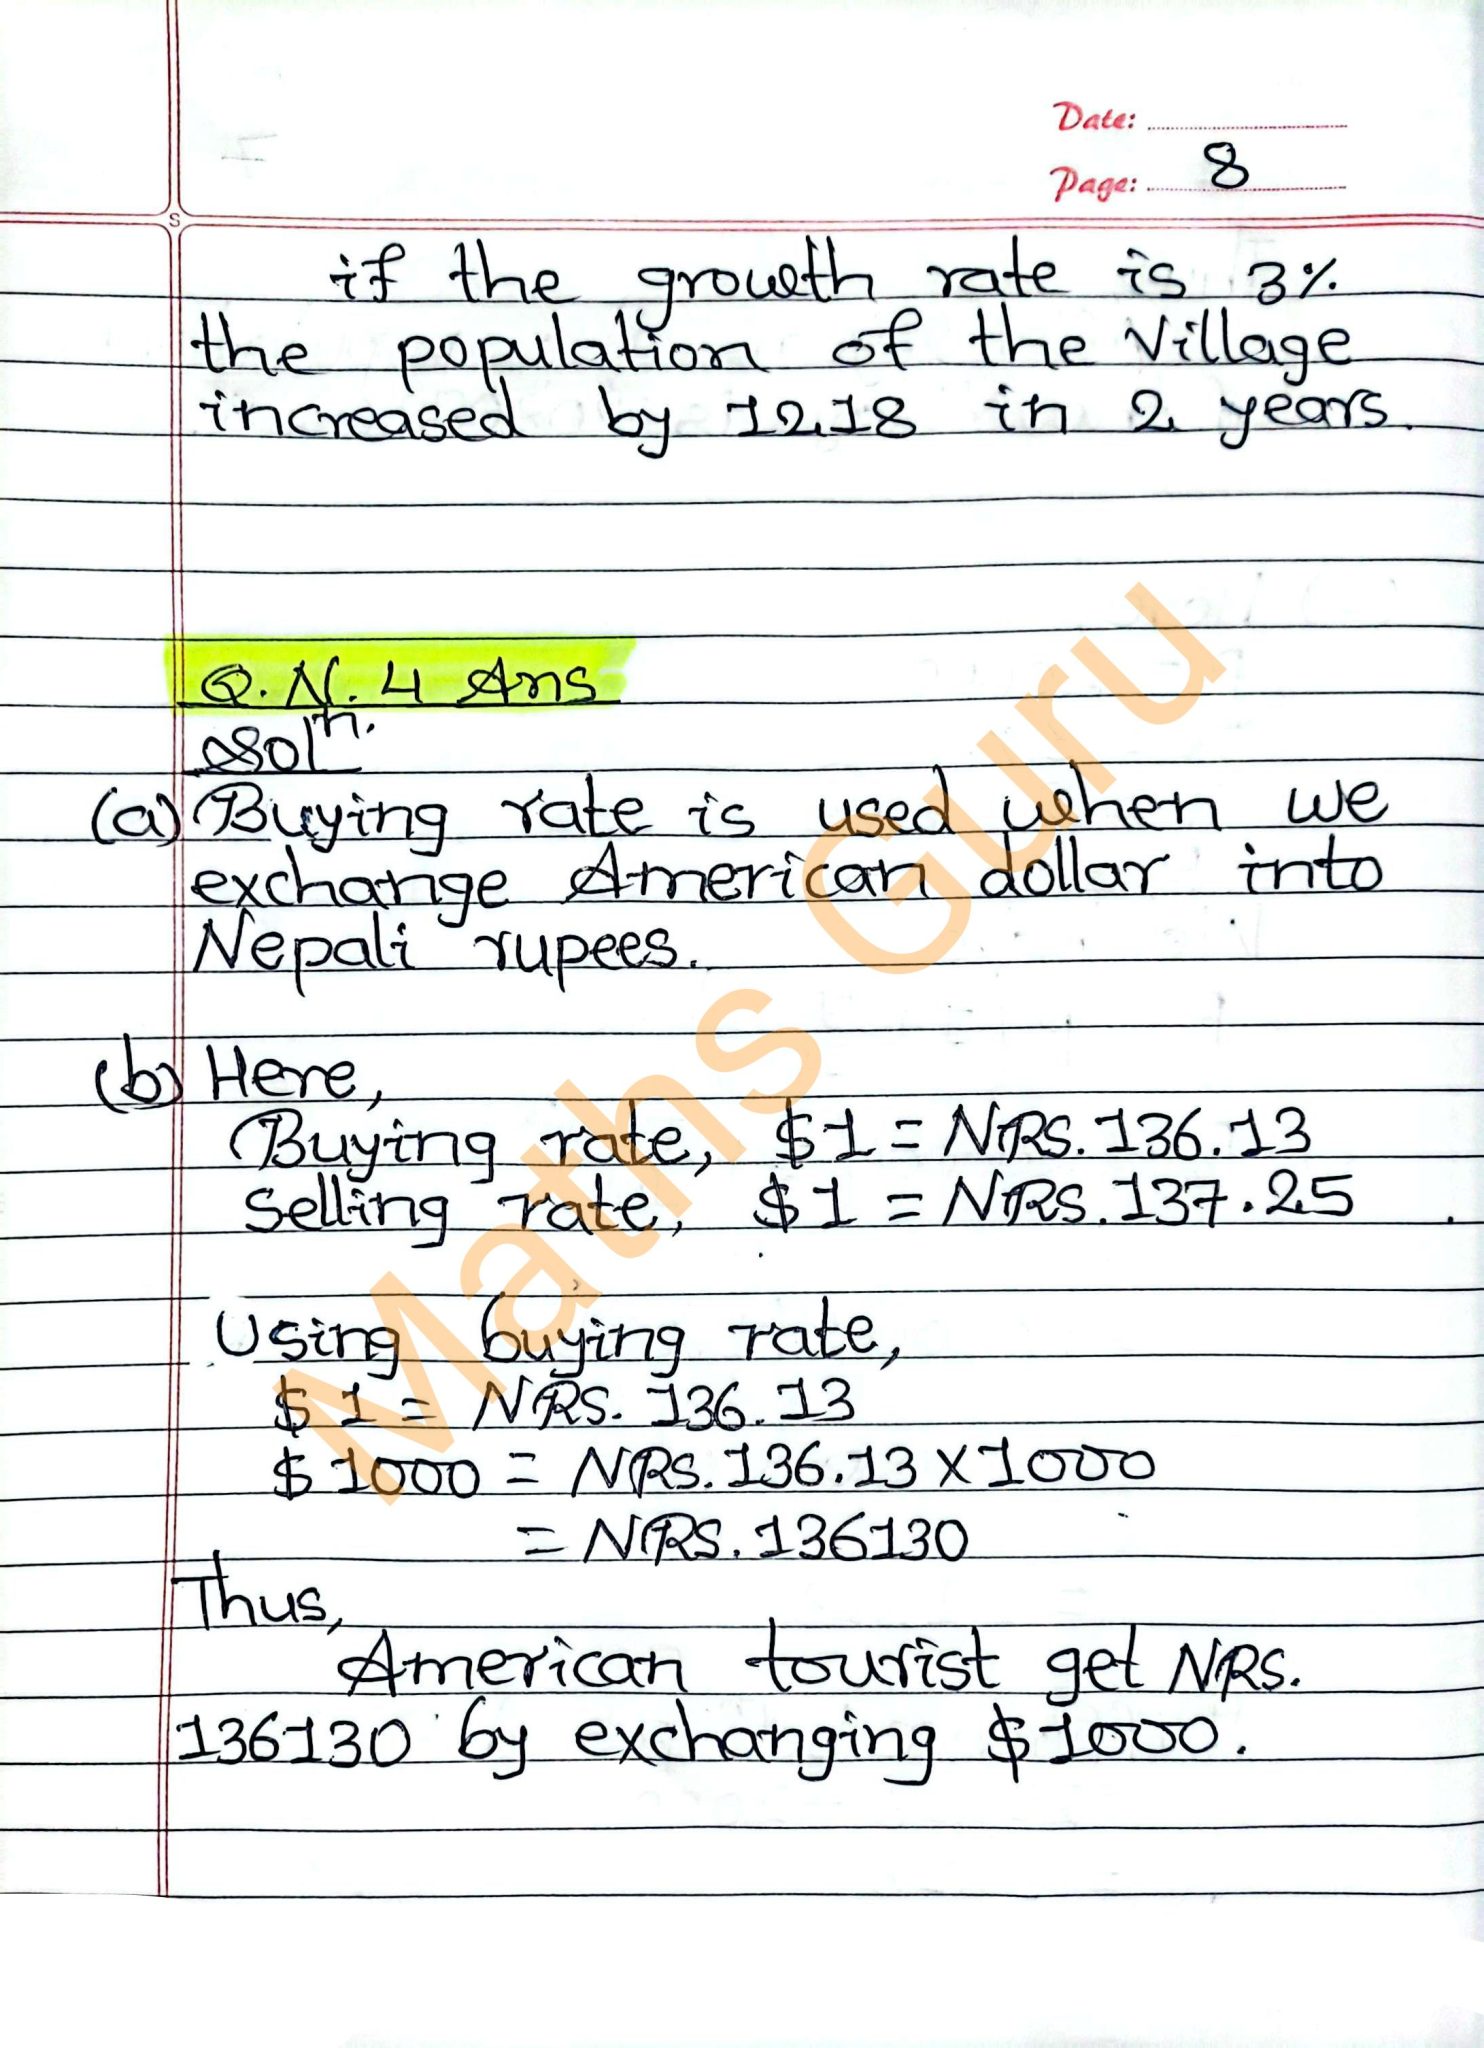 Date:
Page: 8
if the growth rate is 3%
the population of the Village
increased by 1218 in 2 years.
Q.N. 4 Ans
Solⁿ.
(a) Buying rate is used when we
exchange American dollar into
Nepali rupees.
(b) Here,
Buying rate, $1 = NRS. 136.13
Selling rate, $1 = NRS. 137.25
Using buying rate,
$1 = NRS. 136.13
$1000 = NRS. 136.13 x 1000
= NRS. 136130
Thus,
American tourist get NRS.
136130 by exchanging $1000.
Maths Guru
S